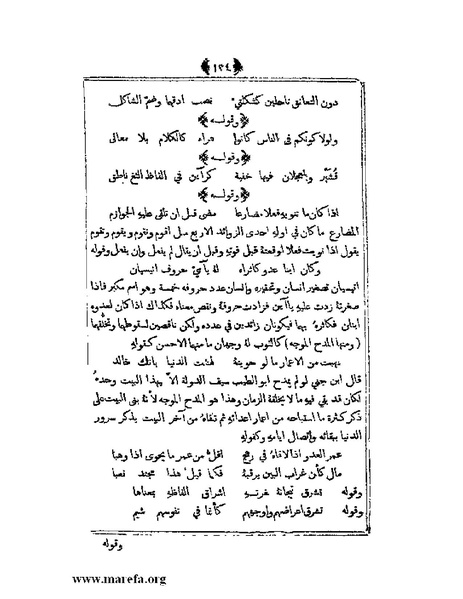 ﴿١٢٤﴾
دون التعانق ناحلين كشكلتي نصب ادقها وضم الشاكل
﴿وقوله﴾
ولولا كونكم في الناس كانوا هراء كالكلام بلا معاني
﴿وقوله﴾
قُشَيْر وبلعجلان فيها خفية كرآءين في الفاظ الثغ ناطق
﴿وقوله﴾
اذا كان ما تنويه فعلا مضارعا مضى قبل ان تلقى عليه الجوازم
المضارع ما كان في اوله احدى الزوائد الاربع مثل اقوم ونقوم ويقوم وتقوم
يقول اذا نويت فعلا اوقعته قبل فوته وقبل ان يقال لم يفعل وإن يفعل وقوله
وكان ابنا عدو كاثراه له ياءَيْ حروف انيسيان
انيسيان تصغير انسان وتحقيره وانسان عدد حروفه خمسة وهو اسم مكبر فاذا
صغرته زدت عليه ياءين فزادت حروفه ونقص معناه فكذلك اذا كان لعدوه
ابنان فكاثره بهما فيكونان زائدين في عدده ولكن ناقصين لسقوطهما وتخلّفهما
(ومنها المدح الموجه) كالثوب له وجهان ما منهما الا حسن كقوله
نهبت من الاعمار ما لو حويته لهنئت الدنيا بانك خالد
قال ابن جني لو لم يمدح ابو الطيب سيف الدولة الا بهذا البيت وحدهُ
لكان قد بقي فيه ما لا يخلقه الزمان وهذا هو المدح الموجه لأنه بنى البيت على
ذكر كثرة ما استباحه من اعمار اعدائه ثم تلقاه من آخر البيت بذكر سرور
الدنيا ببقائه واتصال ايامه وكقوله
عمر العدو اذا لاقاه في رهج اقلّ من عمر ما يحوى اذا وهبا
مال كأن غراب البين يرقبهُ فكلما قيل هذا مجتد نعبا
وقوله تشرق تيجانهُ بغرته اشراق الفاظه بمعناها
وقوله تشرق اعراضهم واوجههم كأنها في نفوسهم شيم
وقوله
www.marefa.org